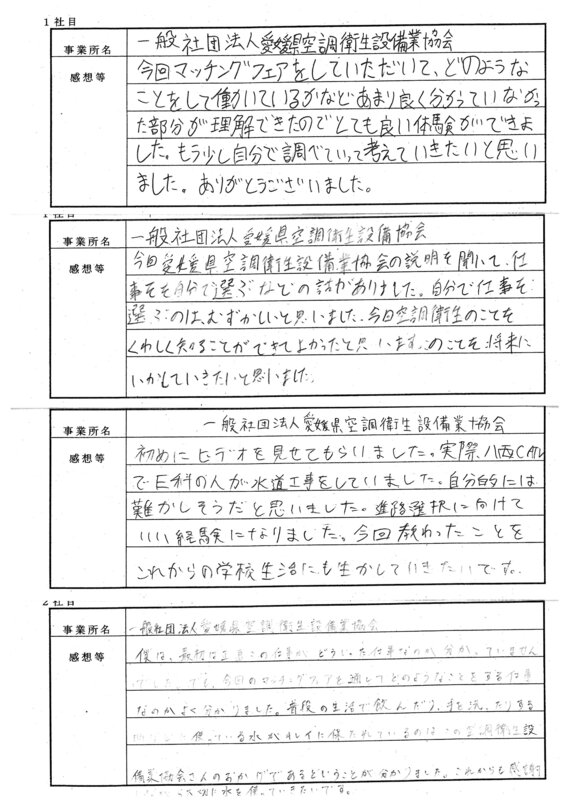 1社目
事業所名 一般社団法人愛媛県空調衛生設備業協会
感想等 今回マッチングフェアをしていただいて、どのような
ことをして働いているかなどあまり良く分かっていなかっ
た部分が理解できたのでとても良い体験ができま
した。もう少し自分で調べていって考えていきたいと思い
ました。ありがとうございました。
事業所名 一般社団法人愛媛県空調衛生設備備協会
感想等 今回愛媛県空調衛生設備業協会の説明を聞いて、仕
事をを自分で選ぶなどの話がありました。自分で仕事を
選ぶのは、むずかしいと思いました。今日空調衛生のことを
くわしく知ることができてよかったと思います。このことを将来に
いかしていきたいと思いました。
事業所名 一般社団法人愛媛県空調衛生設備業協会
感想等 初めにビデオを見せてもらいました。実際、八西CATV
でE科の人が水道工事をしていました。自分的には
難かしそうだと思いました。進路選択に向けて
いい経験になりました。今回教わったことを
これからの学校生活にも生かしていきたいです。
2社目
事業所名 一般社団法人愛媛県空調衛生設備業協会
感想等 僕は、最初は工事この仕事がどういった仕事なのか分かっていません
でした。でも、今回のマッチングフェアを通してどのようなことをする仕事
なのかよく分かりました。普段の生活で飲んだり、手を洗ったりする
使っている水がキレイに保たれているのはこの空調衛生設
備業協会さんのおかげであるということが分かりました。これからも感謝
水を使っていきたいです。